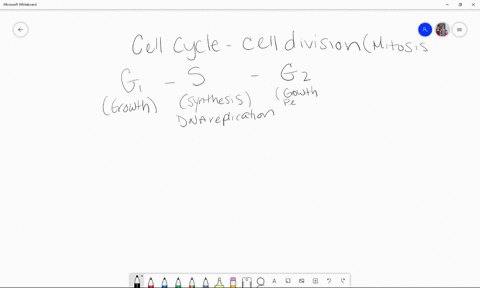 Microsoft Whiteboard
Cell Cycle - cell division (Mitosis
G1 - S - G2
(Growth) (Synthesis) (Gowth
DNA replication Pe